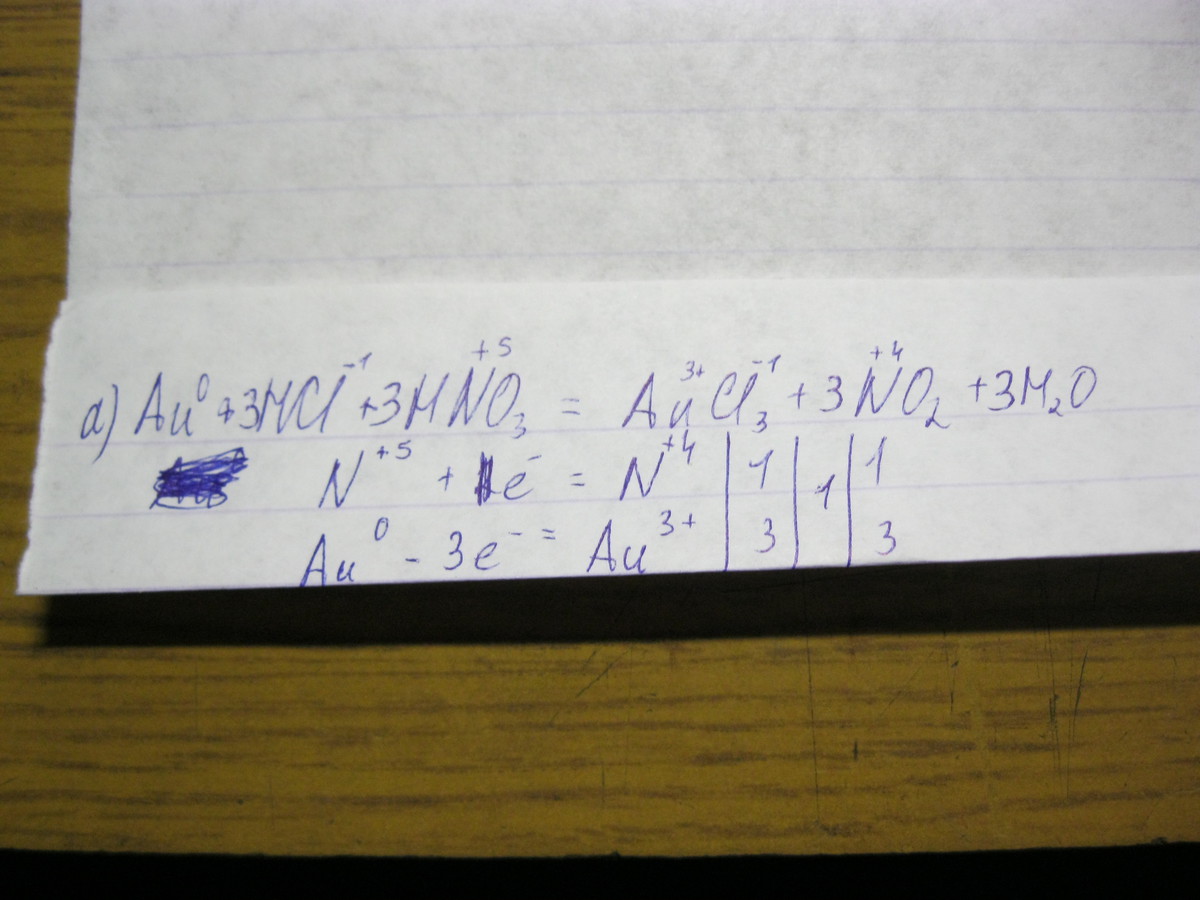 a) Au⁰ + 3HCl⁻¹ + 3HN⁺⁵O₃ = Au³⁺Cl₃⁻¹ + 3N⁺⁴O₂ + 3H₂O
N⁺⁵ + 1e⁻ = N⁺⁴ | 1 | 1 | 1
Au⁰ - 3e⁻ = Au³⁺ | 3 | | 3